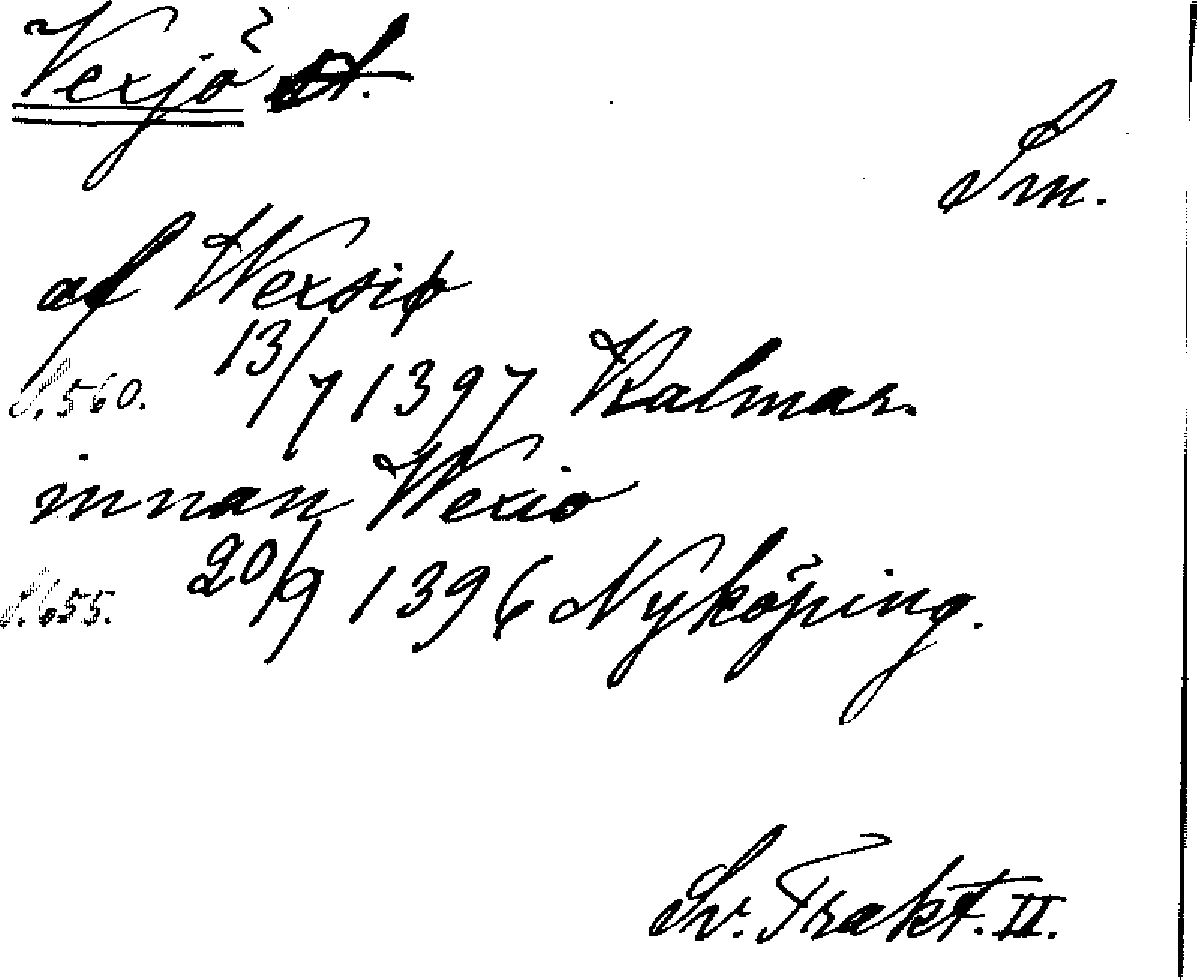 Vexjö st.
Sm.
af Wexsiø
S. 560. 13/7 1397 Kalmar.
innan Wexio
S. 655. 20/9 1396 Nyköping.
Sv. Trakt. II.